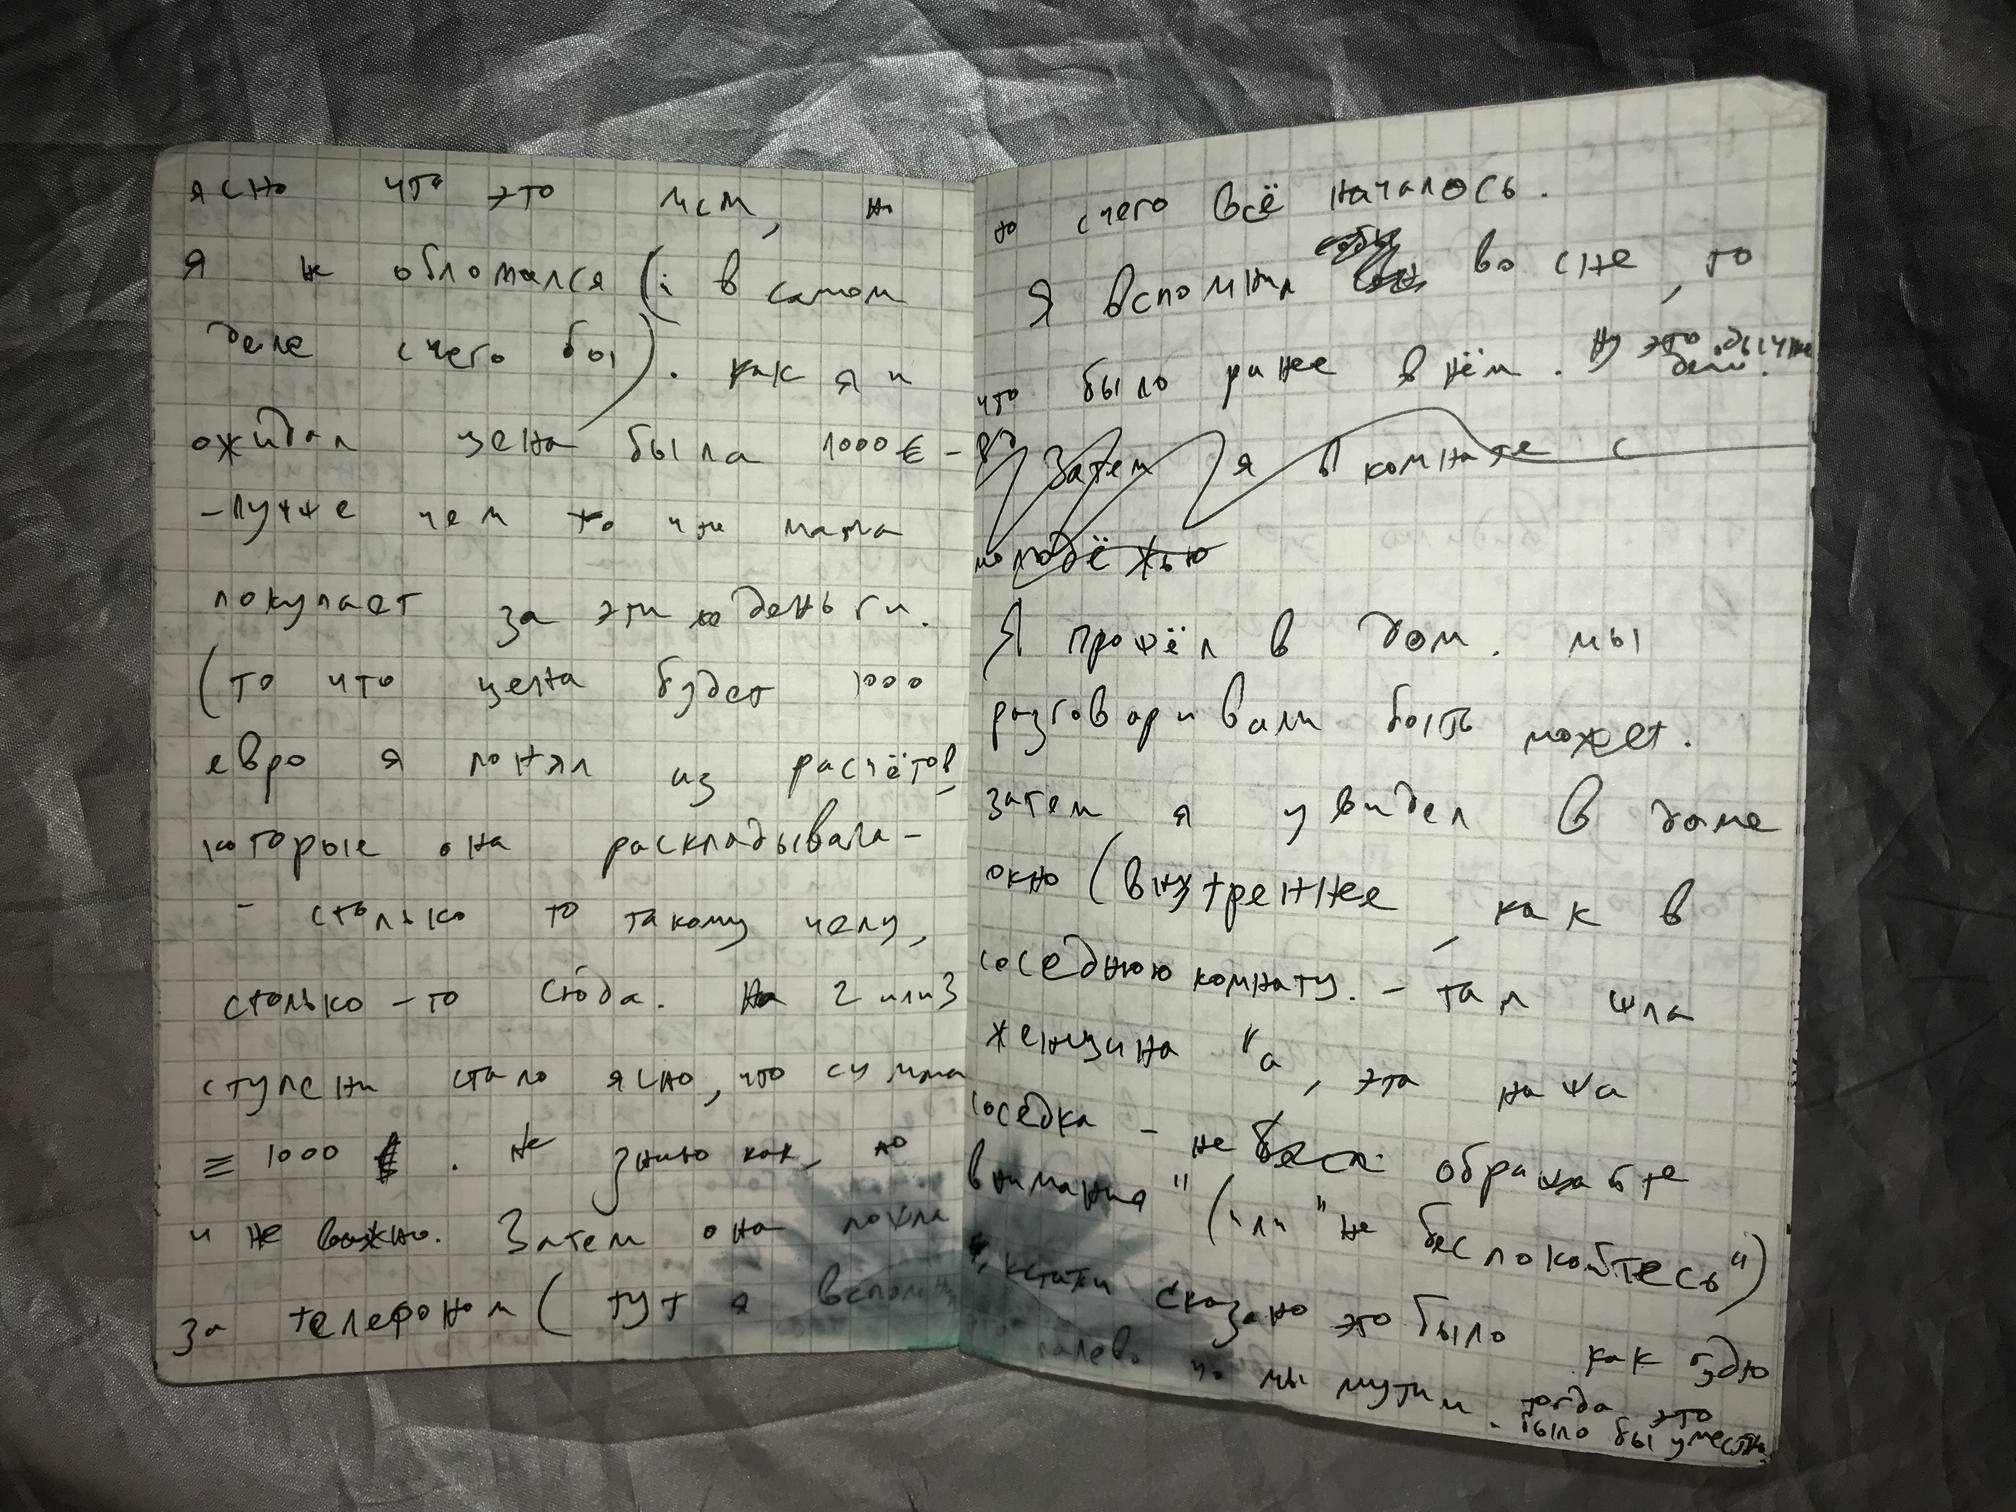 ясно что это мсм, но
я не обломался (и в самом
деле с чего бы). как я и
ожидал цена была 1000 € -
- лучше чем то что мама
покупает за эти деньги.
(то что цена будет 1000
евро я понял из расчётов,
которые она раскладывала -
- столько то такому челу,
столько-то сюда. На 2 или 3
ступени стало ясно, что сумма
= 1000 €. Не знаю как, но
и не важно. Затем она пошла
за телефоном (тут я вспомнил
но с чего всё началось.
Я вспомнил во сне, то
что было ранее в нём. Ну это
было.
Затем я в комнате с
молодёжью
Я прошёл в дом. мы
разговаривали быть может.
затем я увидел в доме
окно (внутреннее, как в
соседнюю комнату. - там шла
женщина "а, эта наша
соседка - не обращайте
внимания" (или "не беспокойтесь")
, кстати сказано это было как
палево что мы мутим. тогда это
было бы уместно